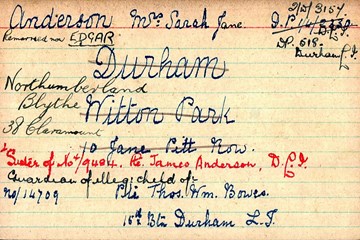 Anderson Mrs Sarah Jane. 2/D/3157.
Remarried now EDGAR D.P.
Durham D.P. 618.
Durham L.I.
Northumberland
Blythe Witton Park
38 Claremount
10 Jane Pitt Row.
Sister of No 4/9484. Pte. James Anderson, D.L.I.
Guardian of illeg: child of:
No/14709 Pte Thos. Wm. Bowes.
15th Btn Durham L.I.